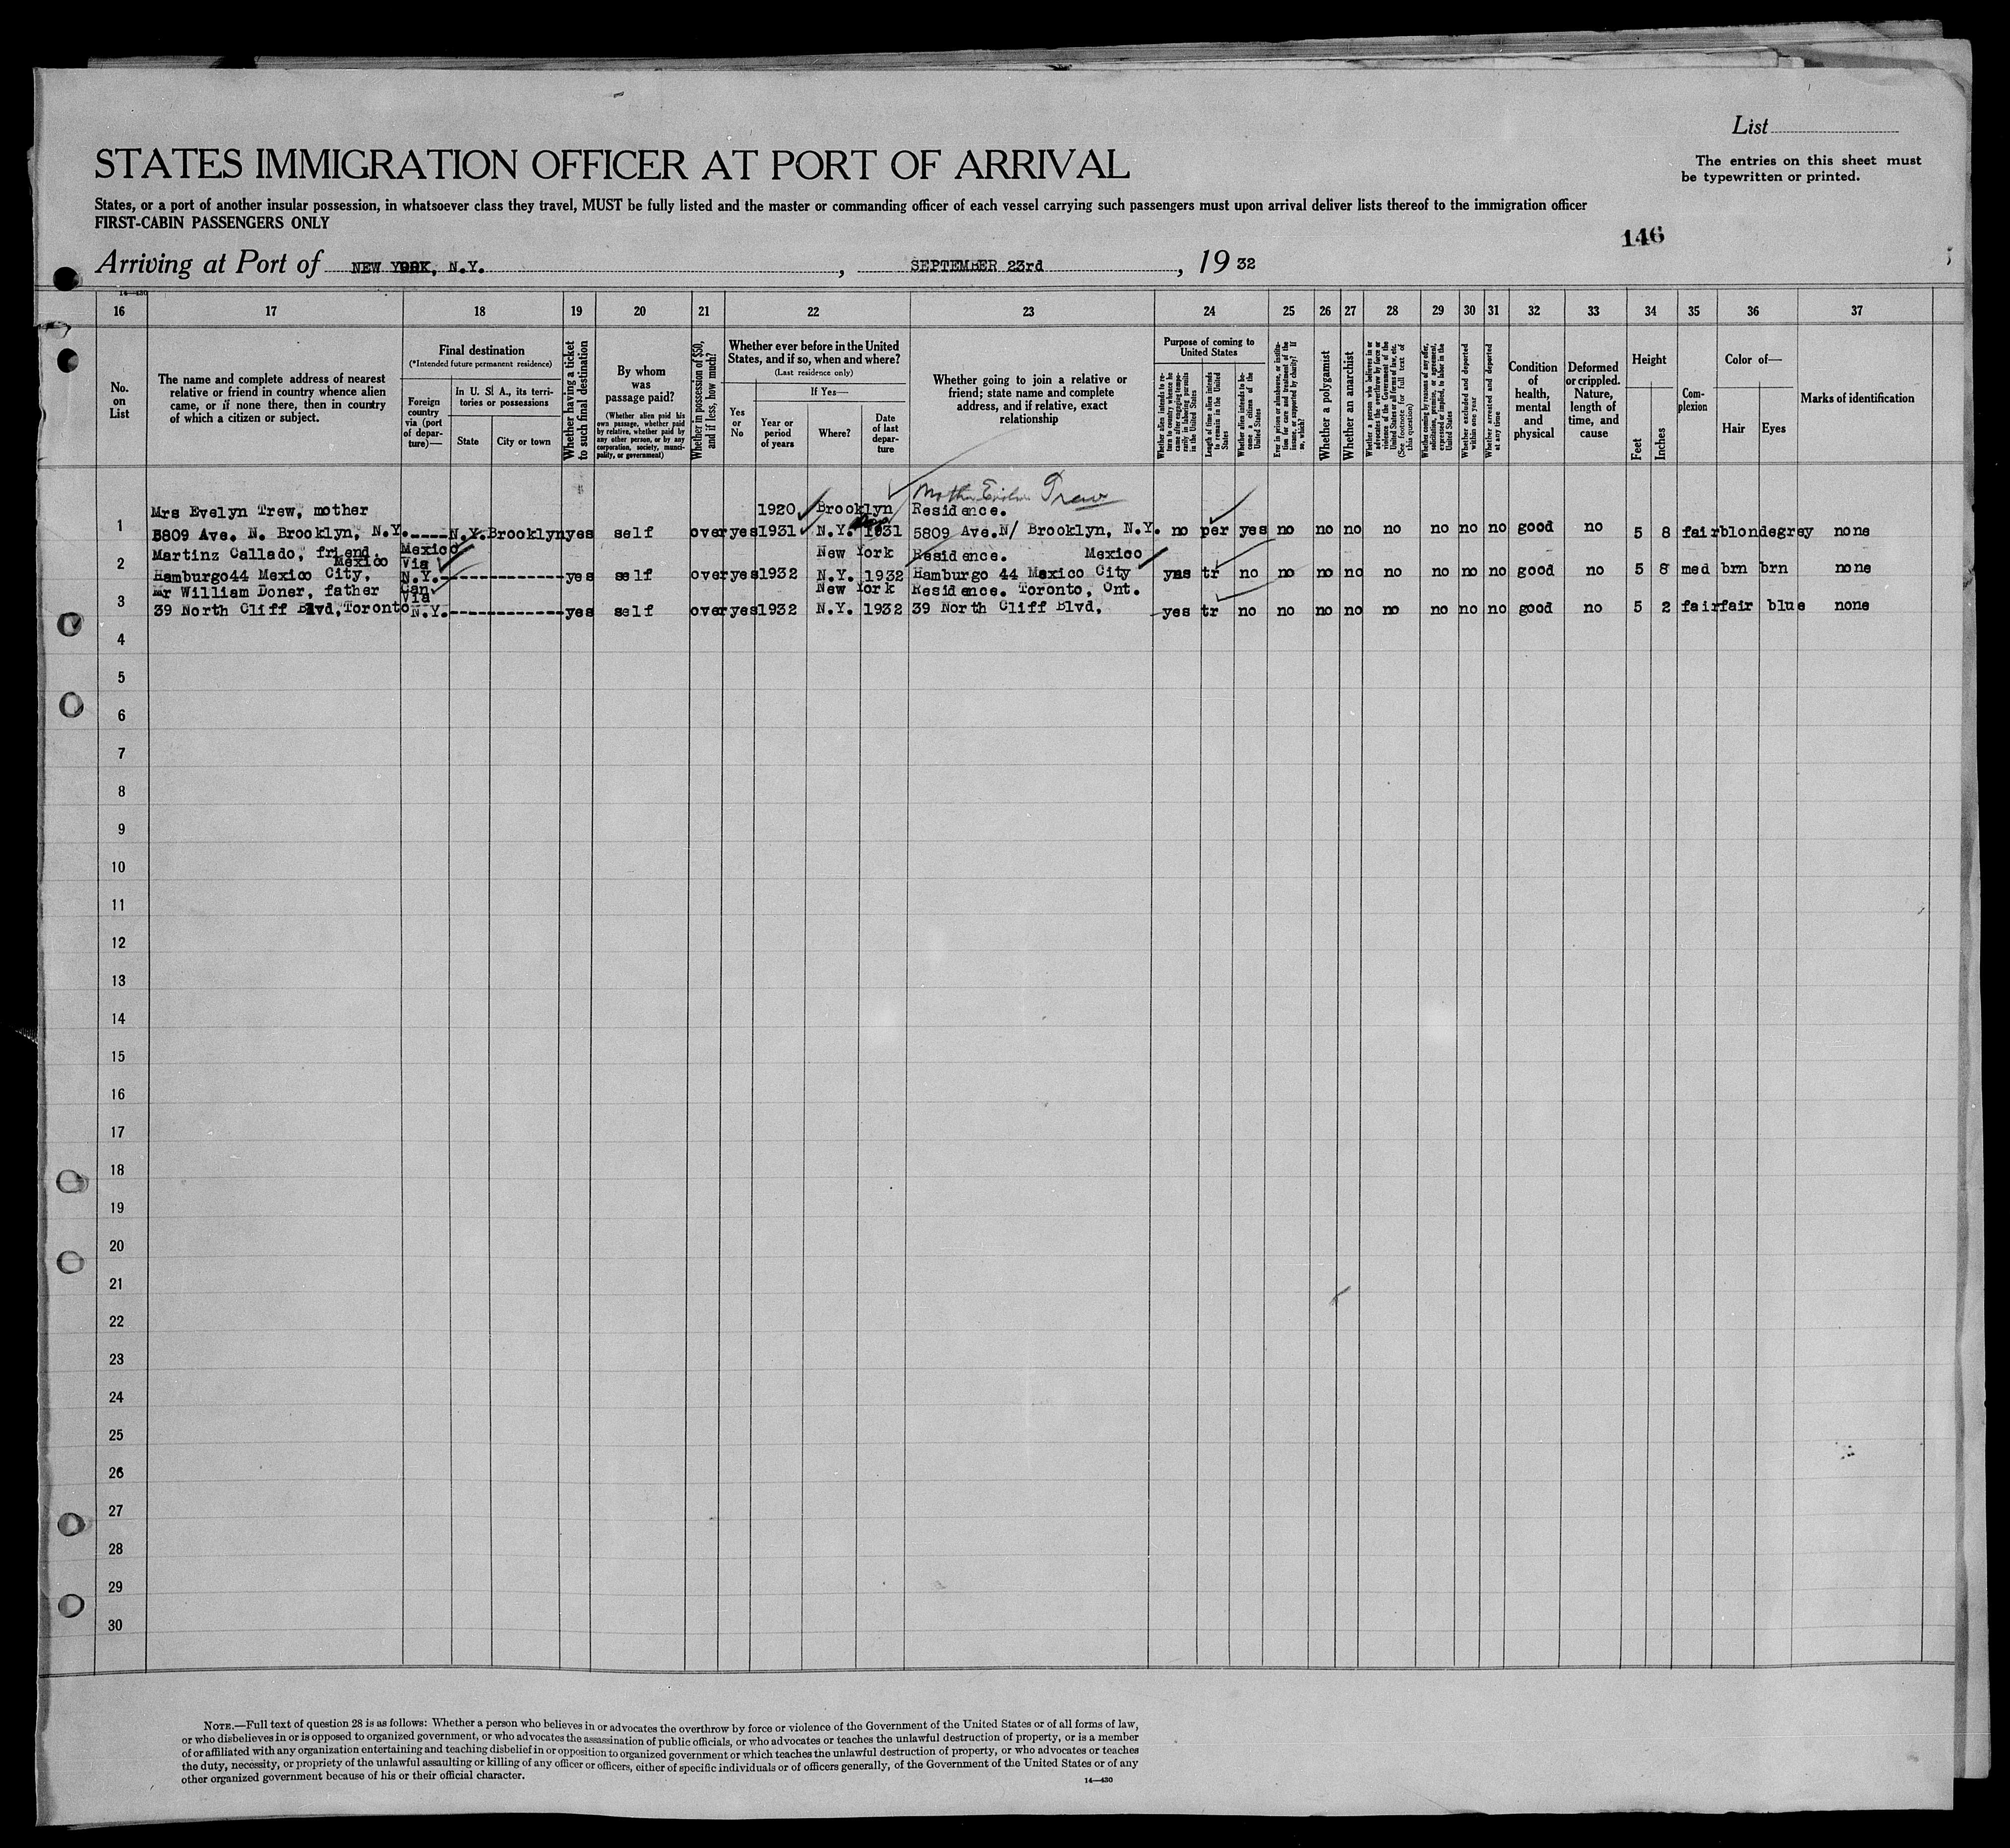 List
STATES IMMIGRATION OFFICER AT PORT OF ARRIVAL
The entries on this sheet must
be typewritten or printed.
States, or a port of another insular possession, in whatsoever class they travel, MUST be fully listed and the master or commanding officer of each vessel carrying such passengers must upon arrival deliver lists thereof to the immigration officer
FIRST-CABIN PASSENGERS ONLY
146
Arriving at Port of NEW YORK, N.Y. , SEPTEMBER 23rd , 19 32
14—430
16 17 18 19 20 21 22 23 24 25 26 27 28 29 30 31 32 33 34 35 36 37
No. on List
The name and complete address of nearest
relative or friend in country whence alien
came, or if none there, then in country
of which a citizen or subject.
Final destination
(*Intended future permanent residence)
Foreign country via (port of departure)—
In U. S. A., its territories or possessions
State
City or town
Whether having a ticket to such final destination
By whom was passage paid?
(Whether alien paid his own passage, whether paid by relative, whether paid by any other person, or by any corporation, society, municipality, or government)
Whether in possession of $50, and if less, how much?
Whether ever before in the United States, and if so, when and where?
(Last residence only)
Yes or No
If Yes—
Year or period of years
Where?
Date of last departure
Whether going to join a relative or
friend; state name and complete
address, and if relative, exact
relationship
Purpose of coming to United States
Whether alien intends to return to country whence he came after engaging temporarily in laboring pursuits in the United States
Length of time alien intends to remain in the United States
Whether alien intends to become a citizen of the United States
Ever in prison or almshouse, or institution for care and treatment of the insane, or supported by charity? If so, which?
Whether a polygamist
Whether an anarchist
Whether a person who believes in or advocates the overthrow by force or violence of the Government of the United States or all forms of law, etc. (See footnote for full text of this question)
Whether coming by reasons of any offer, solicitation, promise, or agreement, expressed or implied, to labor in the United States
Whether excluded and deported within one year
Whether arrested and deported at any time
Condition of health, mental and physical
Deformed or crippled. Nature, length of time, and cause
Height
Feet
Inches
Complexion
Color of—
Hair
Eyes
Marks of identification
Mother Evelyn Trew
Mrs Evelyn Trew, mother 1920 Brooklyn Residence.
1 5809 Ave. N. Brooklyn, N.Y. ---- N.Y. Brooklyn yes self over yes 1931 N.Y. 1931 5809 Ave.N/ Brooklyn, N.Y. no per yes no no no no no no no good no 5 8 fair blonde grey none
Martinz Callado, friend. Mexico New York Residence. Mexico
Mexico Via
2 Hamburgo44 Mexico City, N.Y.-------------- yes self over yes 1932 N.Y. 1932 Hamburgo 44 Mexico City yes tr no no no no no no no no good no 5 8 med brn brn none
Mr William Doner, father Can. New York Residence. Toronto, Ont.
Via
3 39 North Cliff Blvd, Toronto N.Y.-------------- yes self over yes 1932 N.Y. 1932 39 North Cliff Blvd, yes tr no no no no no no no no good no 5 2 fair fair blue none
4
5
6
7
8
9
10
11
12
13
14
15
16
17
18
19
20
21
22
23
24
25
26
27
28
29
30
NOTE.—Full text of question 28 is as follows: Whether a person who believes in or advocates the overthrow by force or violence of the Government of the United States or of all forms of law,
or who disbelieves in or is opposed to organized government, or who advocates the assassination of public officials, or who advocates or teaches the unlawful destruction of property, or is a member
of or affiliated with any organization entertaining and teaching disbelief in or opposition to organized government or which teaches the unlawful destruction of property, or who advocates or teaches
the duty, necessity, or propriety of the unlawful assaulting or killing of any officer or officers, either of specific individuals or of officers generally, of the Government of the United States or of any
other organized government because of his or their official character.
14—430